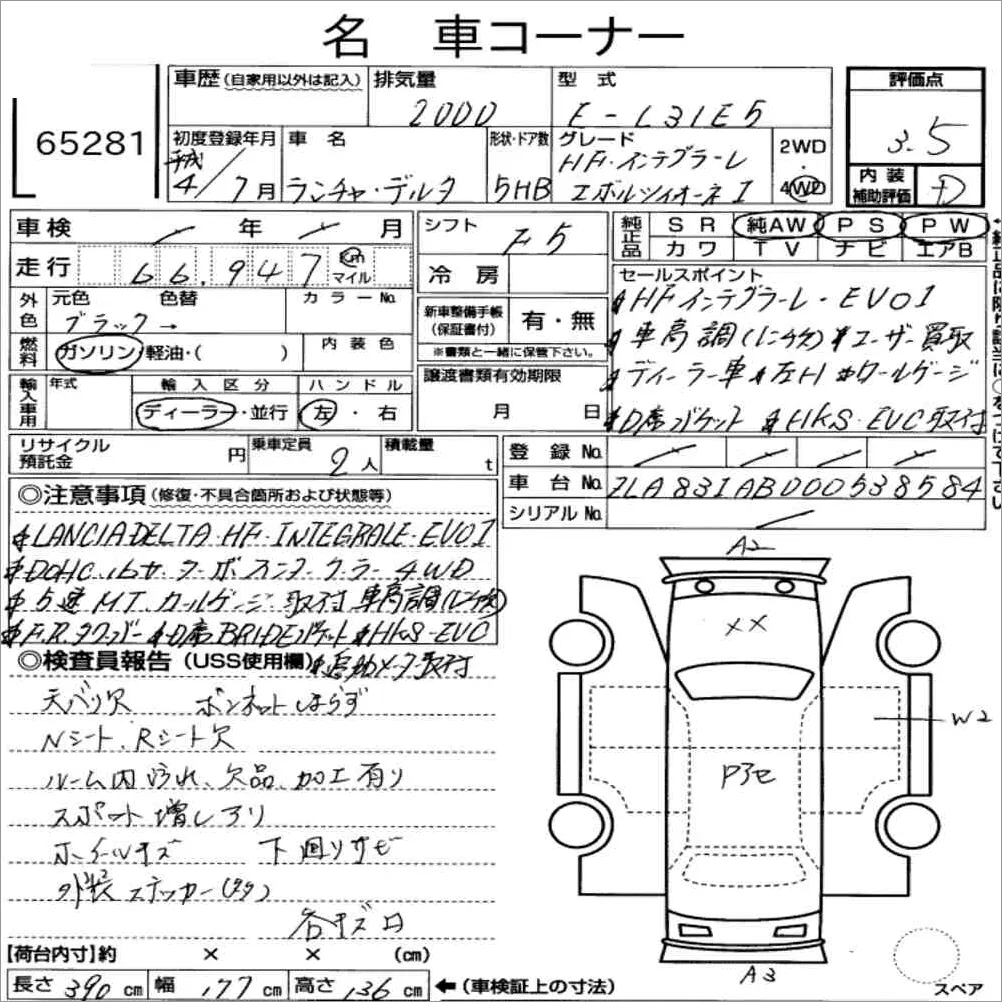 名 車コーナー
65281
車歴 (自家用以外は記入)
排気量
2000
型 式
E-L31E5
評価点
3.5
初度登録年月
平成
4/7月
車 名
ランチャ・デルタ
形状・ドア数
5HB
グレード
HF・インテグラーレ
エボルツィオーネ I
2WD
・
4WD
内 装
補助評価
D
車検 年 月
シフト
F5
純正品
SR 純AW PS PW
カワ TV ナビ エアB
走行
66,947
Km
マイル
冷 房
セールスポイント
HFインテグラーレ・EVO1
車高調(ピロ欠) ユーザー買取
ディーラー車 左H ロールゲージ
D席バケット HKS・EVC取付
外色
元色
色替
カラーNo.
ブラック→
新車整備手帳
(保証書付)
有・無
※書類と一緒に保管下さい。
燃料
ガソリン / 軽油・( )
内 装 色
輸入車用
年式
輸 入 区 分
ディーラー・並行
ハ ン ド ル
左・右
譲渡書類有効期限
月 日
リサイクル
預託金
円
乗車定員
2人
積載量
t
登 録 No.
車 台 No.
ZLA831AB000538584
シリアル No.
◎注意事項 (修復・不具合箇所および状態等)
LANCIA DELTA・HF・INTEGRALE・EVO1
DOHC 16V ターボ インタークーラー 4WD
5速MT ロールゲージ取付 車高調
F.R.タワーバー D席BRIDEバケット HKS・EVC
◎検査員報告 (USS使用欄)
追加メーター取付
天バリ欠 ボンネットしまらず
Nシート、Rシート欠
ルーム内汚れ、欠品、加工有り
スポット増しアリ
ホイールキズ 下廻りサビ
外装ステッカー
各キズ凹
A2
XX
W2
Pアセ
A3
スペア
【荷台内寸】約 × × (cm)
長さ 390 cm 幅 177 cm 高さ 136 cm ←(車検証上の寸法)